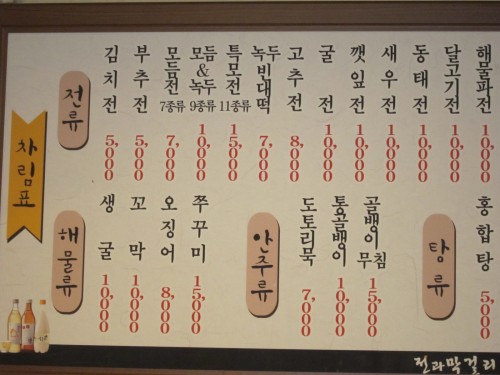 차림표
전류
김치전 5,000
부추전 5,000
모듬전 7종류 7,000
모듬&녹두 9종류 10,000
특모전 11종류 15,000
녹두빈대떡 7,000
고추전 8,000
굴전 10,000
깻잎전 10,000
새우전 10,000
동태전 10,000
달고기전 10,000
해물파전 10,000
해물류
생굴 10,000
꼬막 10,000
오징어 8,000
쭈꾸미 15,000
안주류
도토리묵 7,000
통골뱅이 10,000
골뱅이무침 15,000
탕류
홍합탕 5,000
전과막걸리